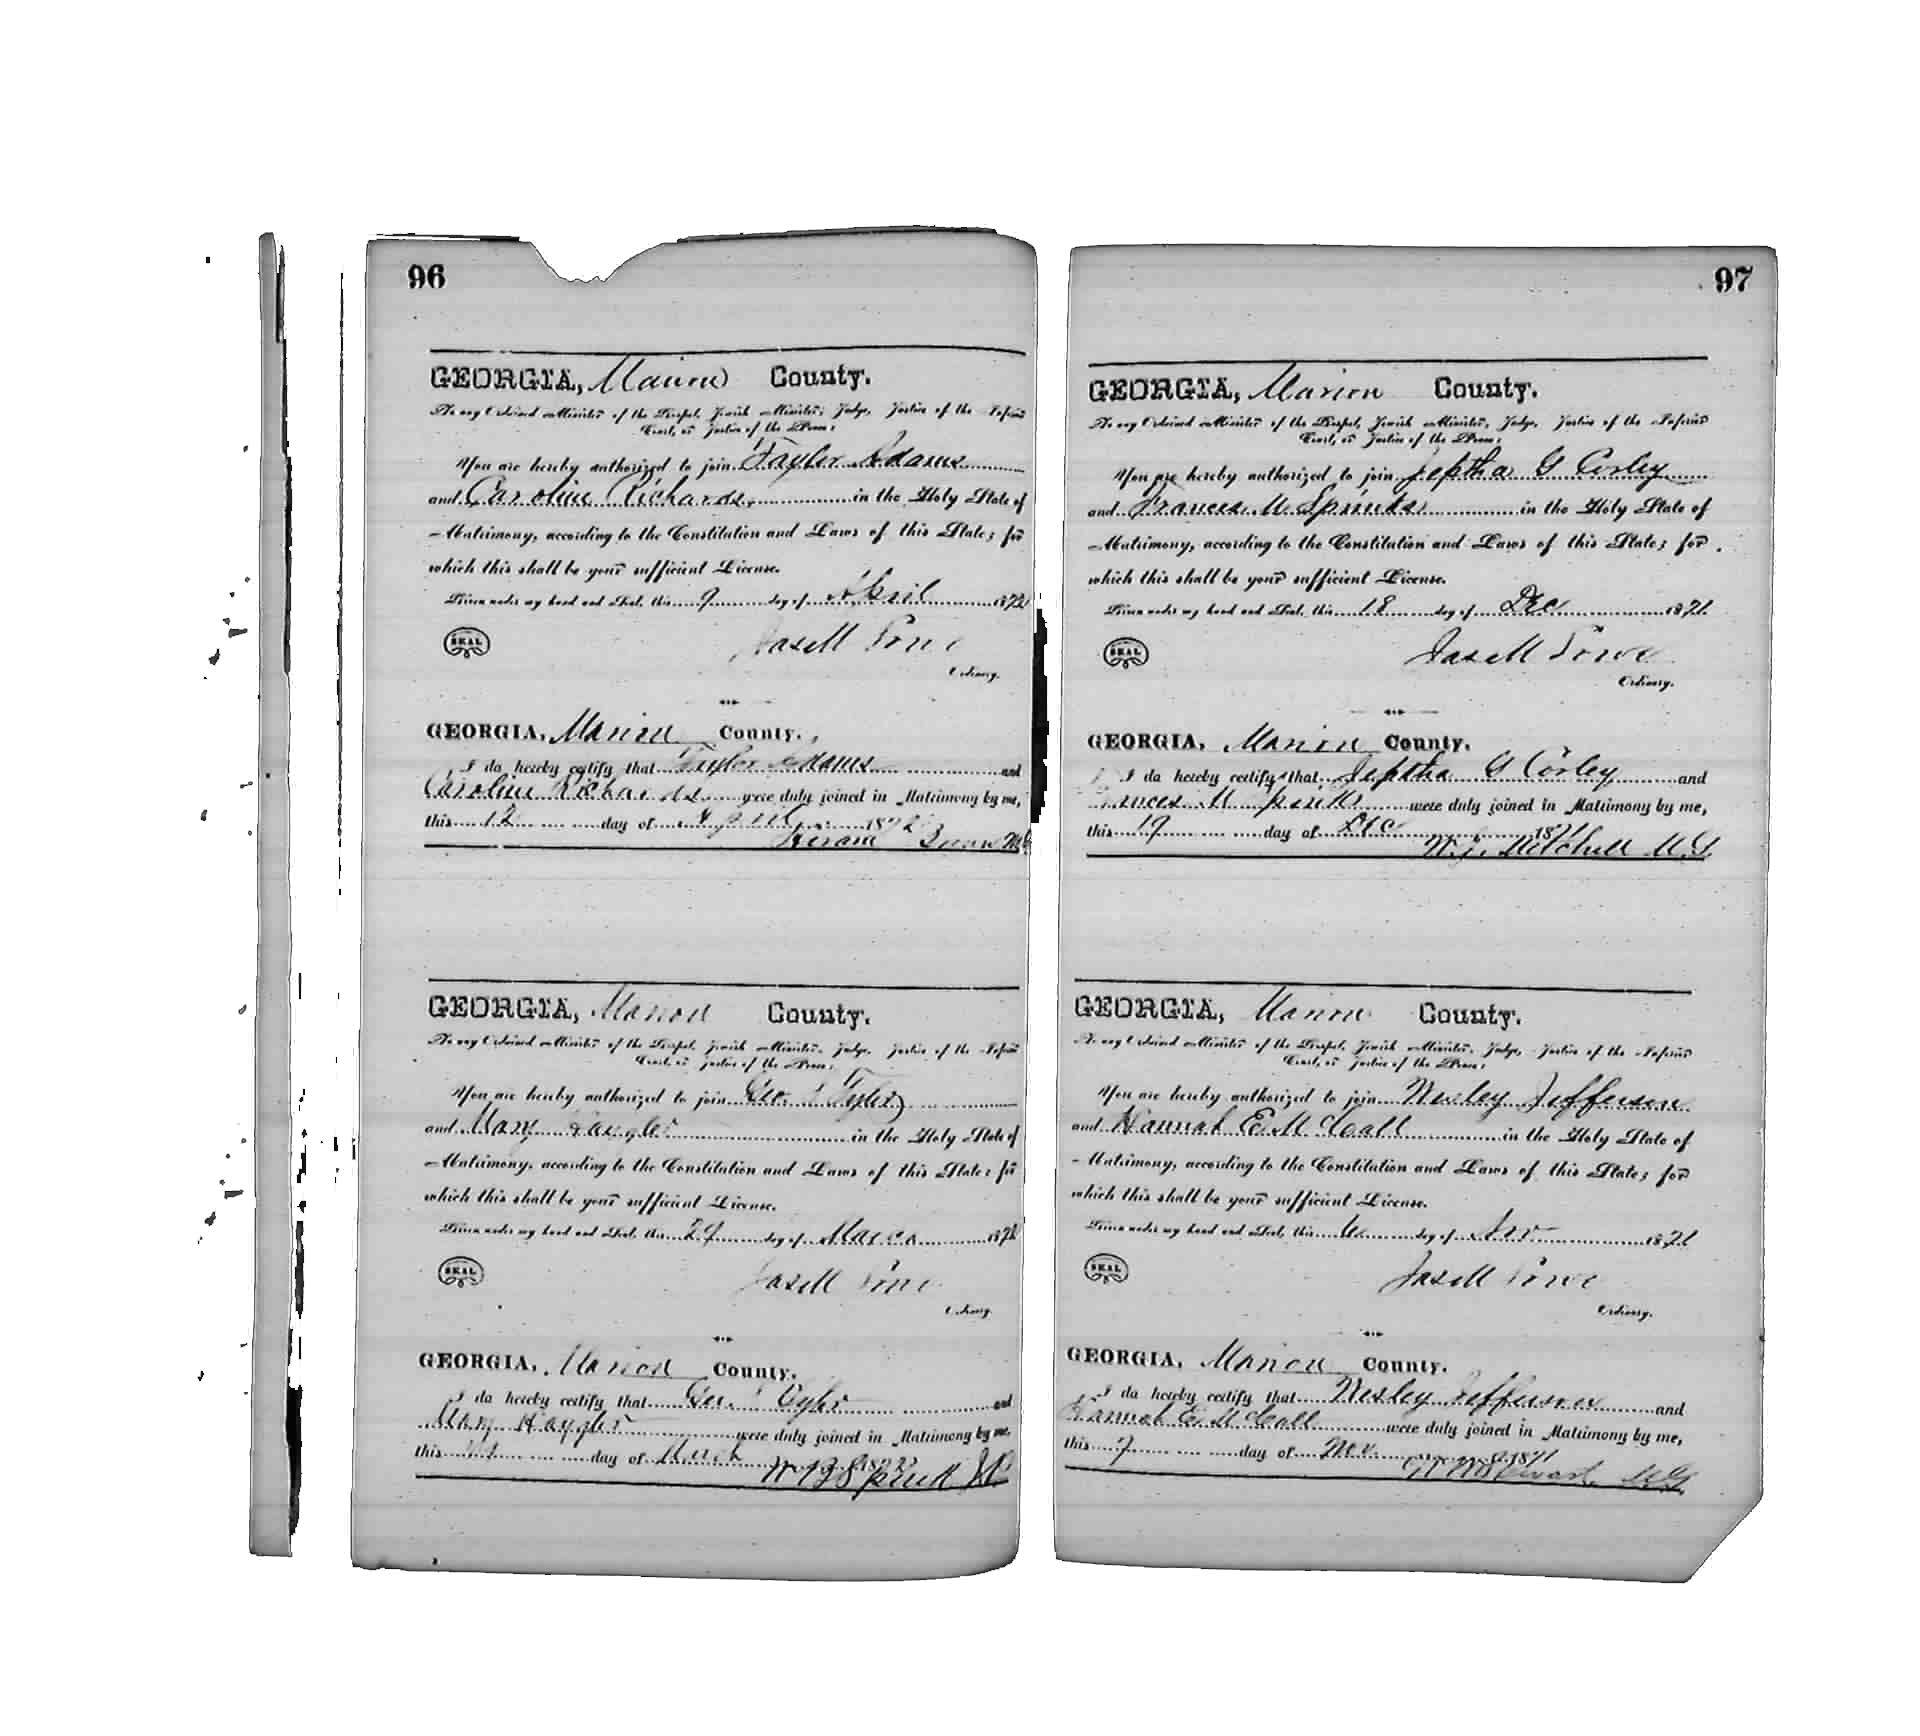 96
GEORGIA, Marion County.
To any Ordained Minister of the Gospel, Jewish Minister, Judge, Justice of the Inferior
Court, or Justice of the Peace:
You are hereby authorized to join Taylor Adams
and Caroline Richards, in the Holy State of
Matrimony, according to the Constitution and Laws of this State; for
which this shall be your sufficient License.
Given under my hand and Seal, this 9 day of April 1872
SEAL
Jas M Lowe
Ordinary.
GEORGIA, Marion County.
I do hereby certify that Taylor Adams and
Caroline Richards were duly joined in Matrimony by me,
this 12 day of April 1872
Hiram
GEORGIA, Marion County.
To any Ordained Minister of the Gospel, Jewish Minister, Judge, Justice of the Inferior
Court, or Justice of the Peace:
You are hereby authorized to join Geo. Tyler
and Mary in the Holy State of
Matrimony, according to the Constitution and Laws of this State; for
which this shall be your sufficient License.
Given under my hand and Seal, this 29 day of March 187
SEAL
Jas M Lowe
Ordinary.
GEORGIA, Marion County.
I do hereby certify that Geo. Tyler and
Mary were duly joined in Matrimony by me,
this day of March 187
W B
97
GEORGIA, Marion County.
To any Ordained Minister of the Gospel, Jewish Minister, Judge, Justice of the Inferior
Court, or Justice of the Peace:
You are hereby authorized to join Jeptha G Corley
and Frances M Spinks in the Holy State of
Matrimony, according to the Constitution and Laws of this State; for
which this shall be your sufficient License.
Given under my hand and Seal, this 18 day of Dec 1871
SEAL
Jas M Lowe
Ordinary.
GEORGIA, Marion County.
I do hereby certify that Jeptha G Corley and
Frances M Spinks were duly joined in Matrimony by me,
this 19 day of Dec 1871
W. J. Mitchell M.G.
GEORGIA, Marion County.
To any Ordained Minister of the Gospel, Jewish Minister, Judge, Justice of the Inferior
Court, or Justice of the Peace:
You are hereby authorized to join Wesley Jefferson
and Hannah E McCall in the Holy State of
Matrimony, according to the Constitution and Laws of this State; for
which this shall be your sufficient License.
Given under my hand and Seal, this 6 day of Nov 1871
SEAL
Jas M Lowe
Ordinary.
GEORGIA, Marion County.
I do hereby certify that Wesley Jefferson and
Hannah E McCall were duly joined in Matrimony by me,
this 7 day of Nov 1871
Stewart M.G.